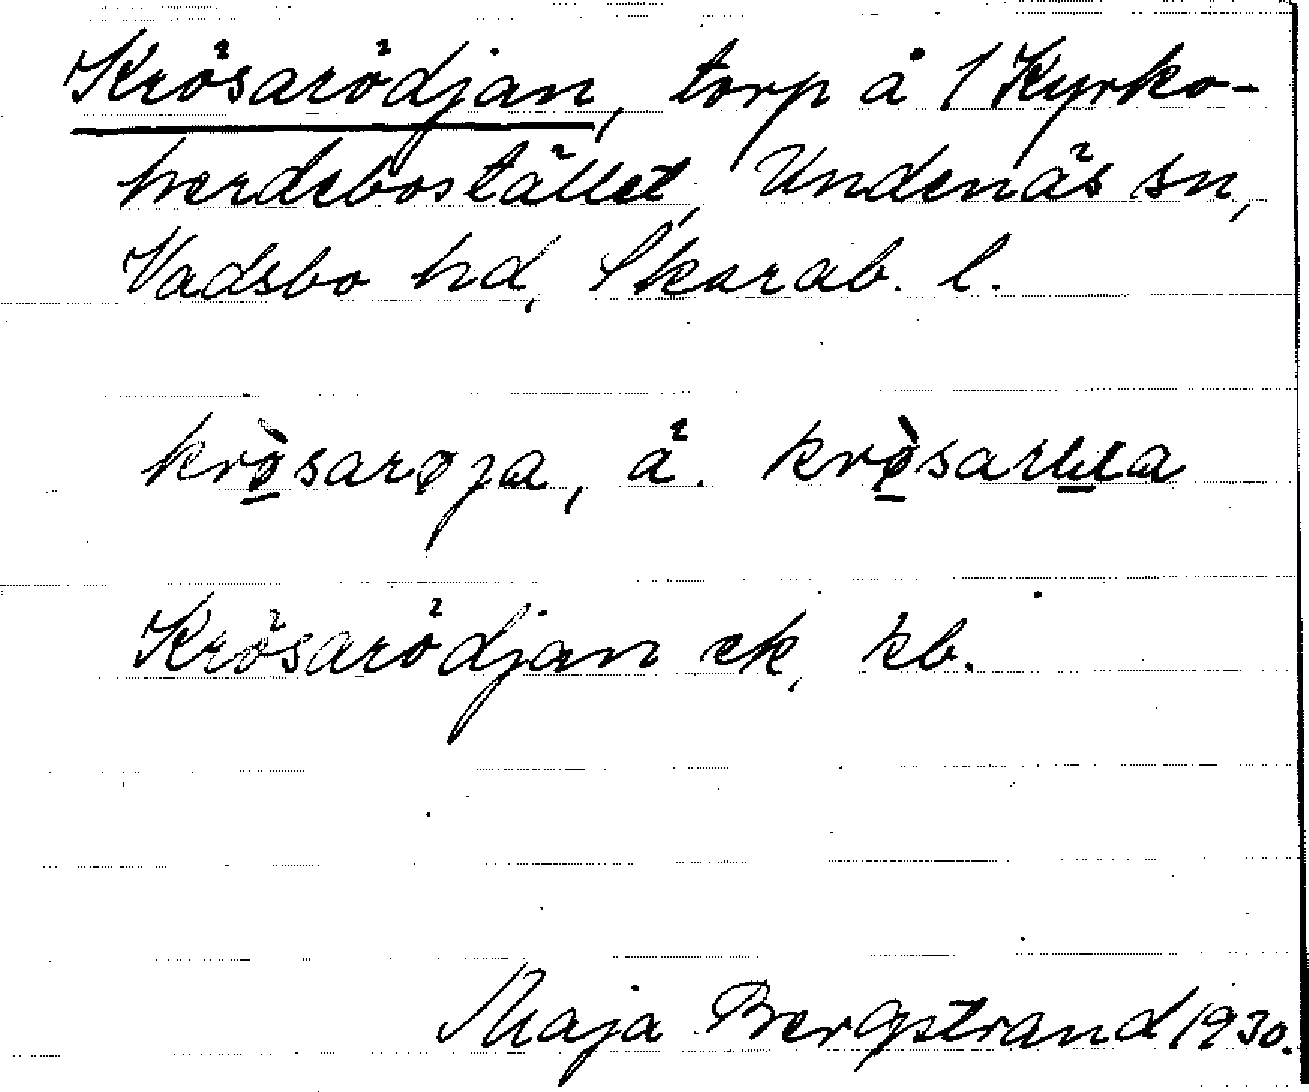 Krösarödjan, torp å 1 Kyrko-
herdebostället, Undenäs sn,
Vadsbo hd, Skarab. l.
krø̀sarøja, ä.
Krösarödjan ek, kb.
Maja Bergstrand 1930.